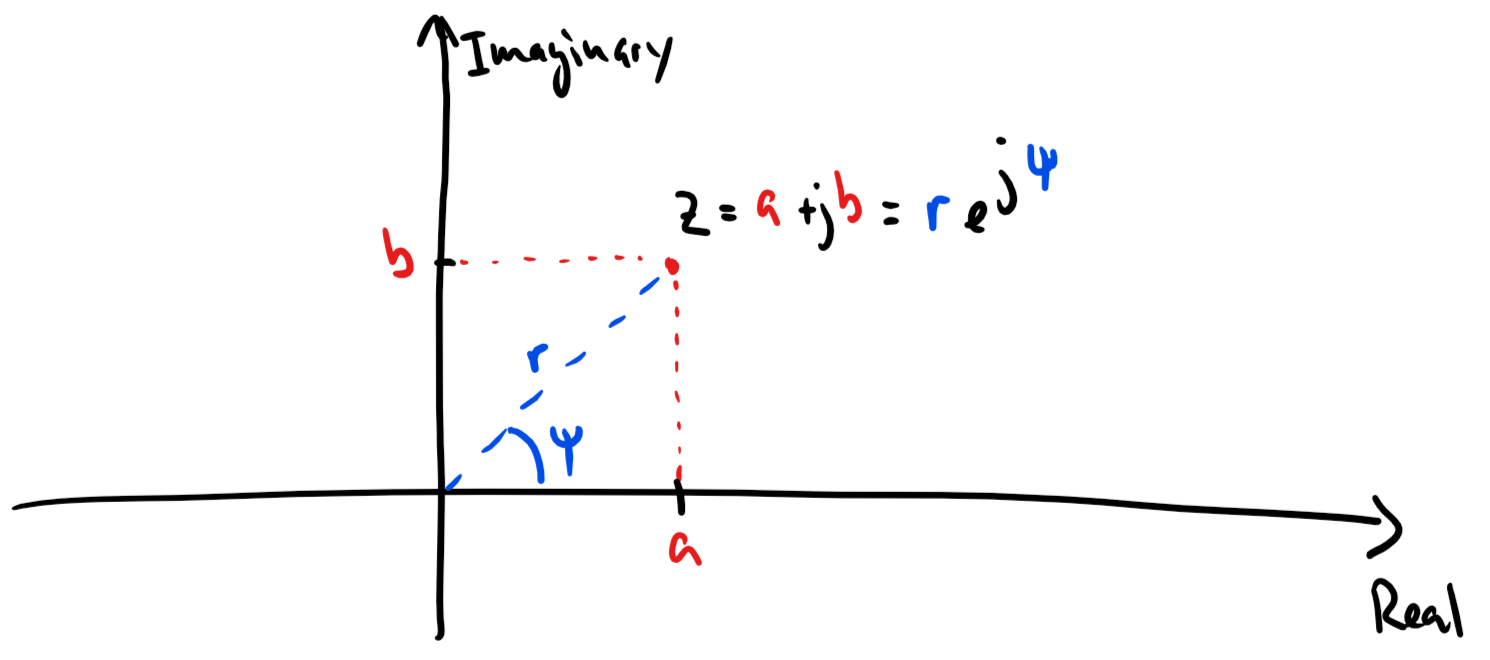 Imaginary
z = a + jb = r e^{jψ}
b
r
ψ
a
Real